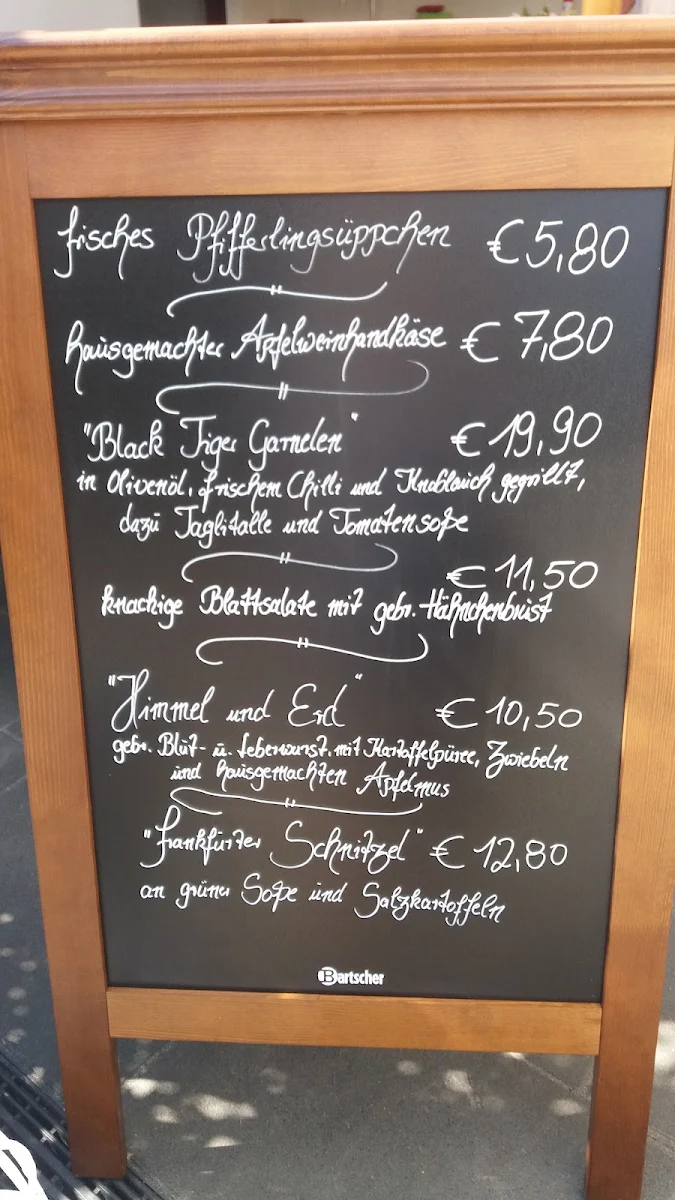 frisches Pfifferlingsüppchen €5,80
hausgemachter Apfelweinhandkäse € 7,80
"Black Tiger Garnelen" € 19,90
in Olivenöl, frischem Chilli und Knoblauch gegrillt,
dazu Tagliatalle und Tomatensoße
€ 11,50
knackige Blattsalate mit gebr. Hähnchenbrust
"Himmel und Erd" € 10,50
gebr. Blut- u. Leberwurst, mit Kartoffelpüree, Zwiebeln
und hausgemachten Apfelmus
"Frankfurter Schnitzel" € 12,80
an grüner Soße und Salzkartoffeln
Bartscher